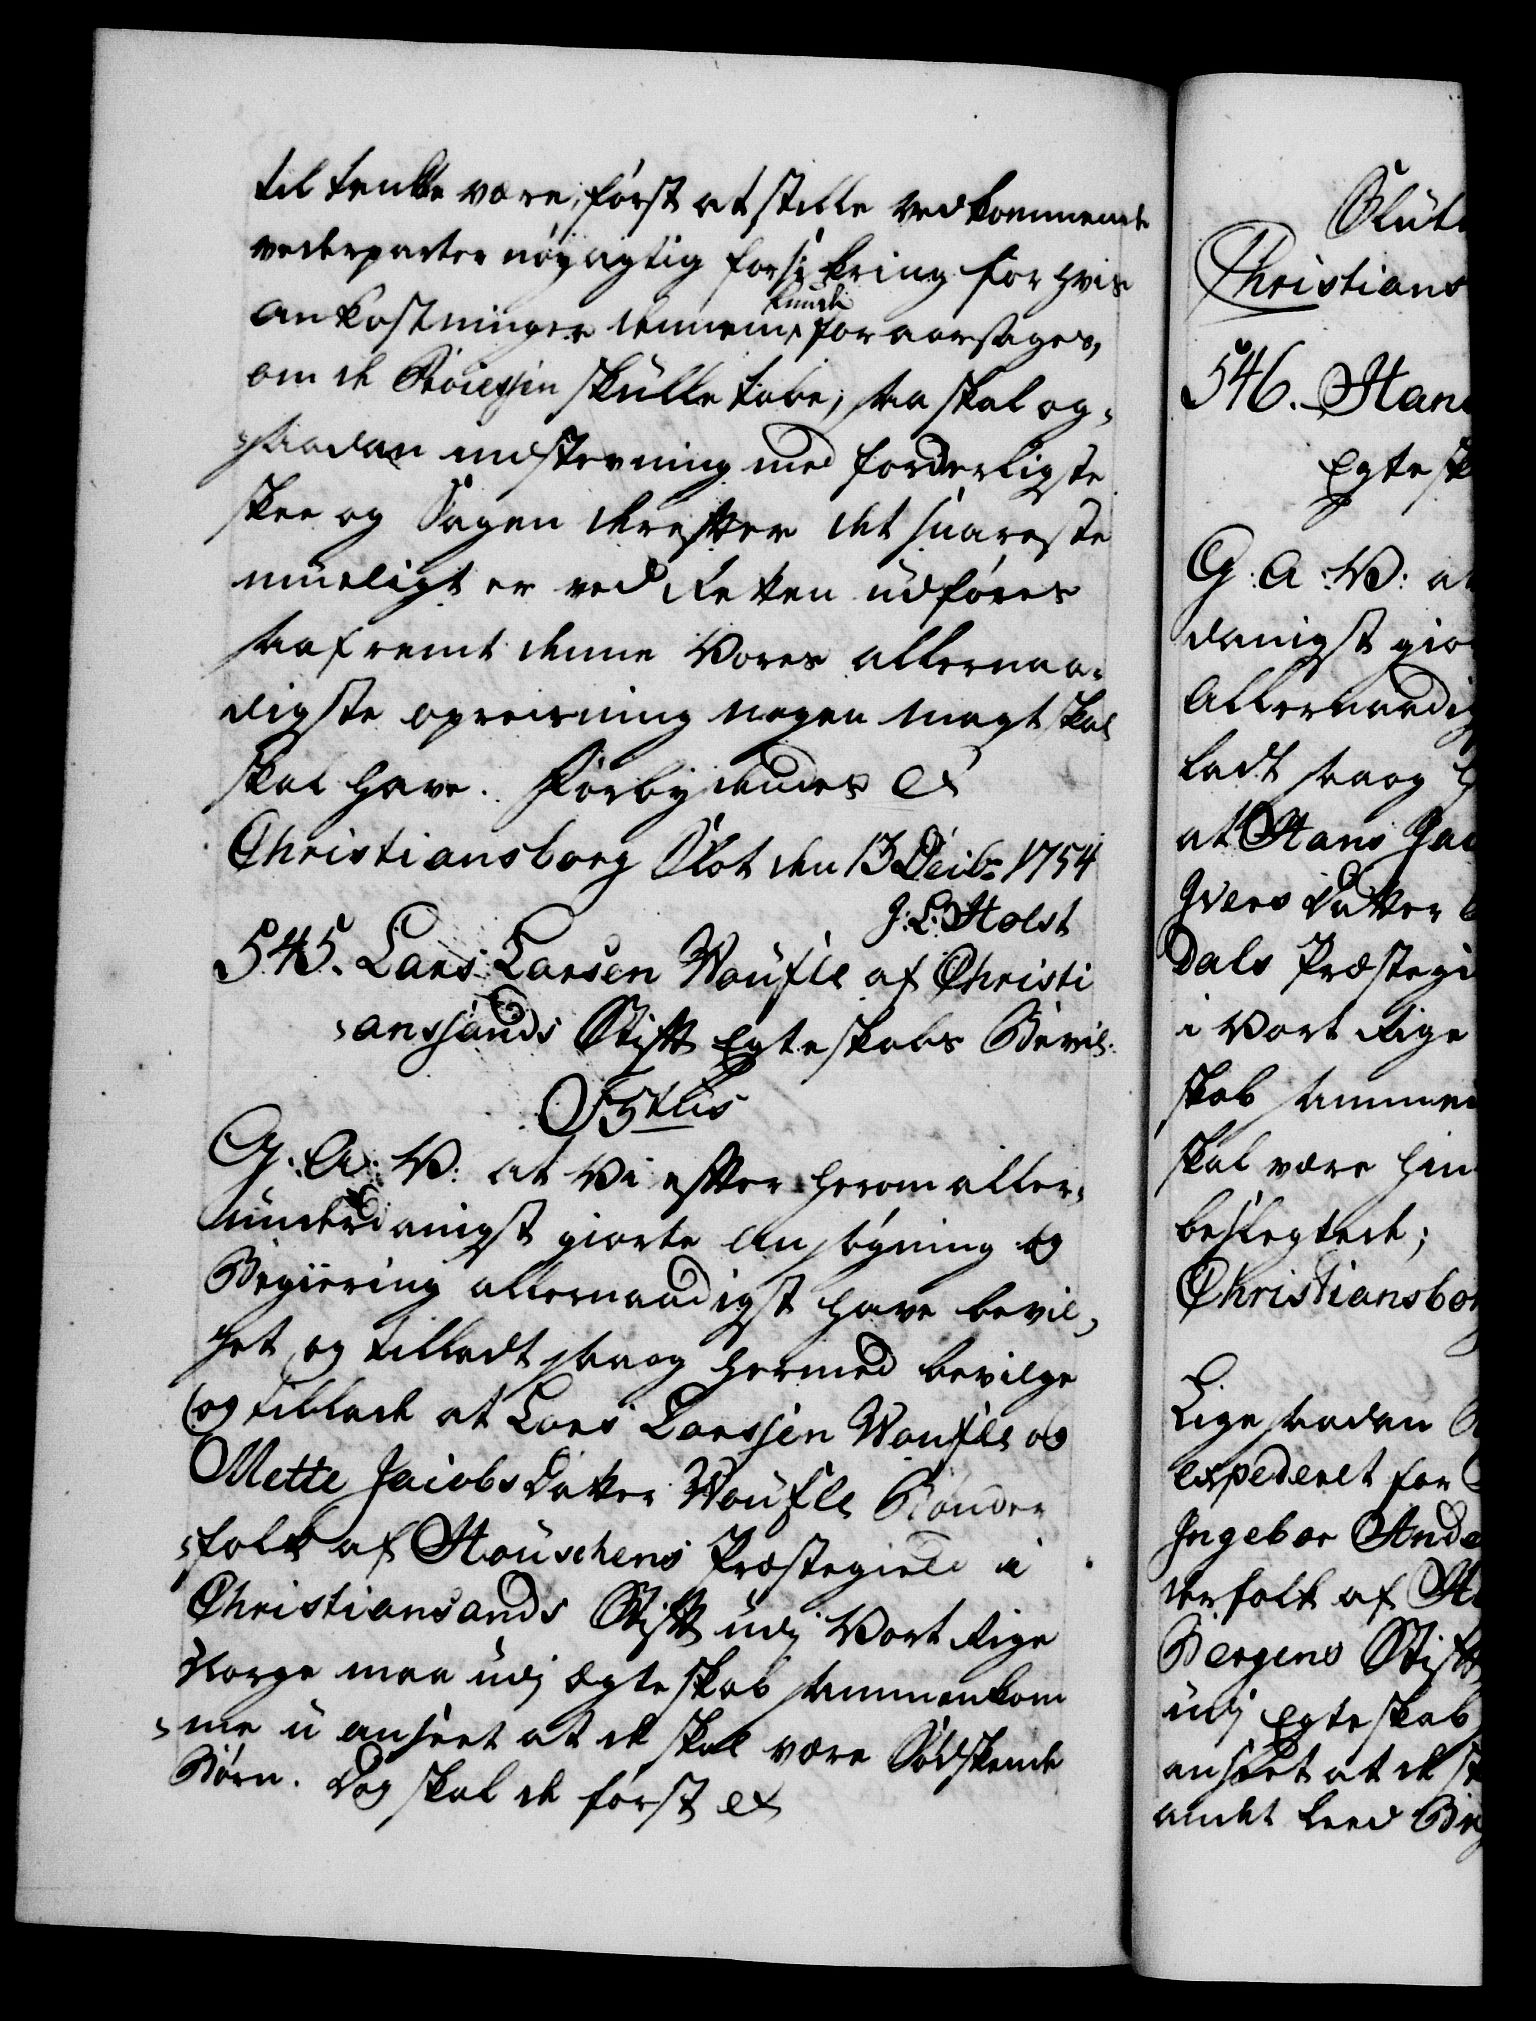 til tenkte være, først at stille vedkommende
vederparter nøyagtig forsikring for hvis
ankostninger dennem kunde foraarsages,
om de Processen skulle tabe; saa skal og-
saadan indstevning med forderligste
skee og Sagen derefter det snareste
mueligt er ved Retten udføres
saafremt denne Vores allernaa-
digste opreisning nogen magt skal
skal have. Forbydendes &
Christiansborg Slot den 13 Decibr 1754
J: L: Holst
545. Lars Larsen Woufle af Christi
-ansands Stift Egteskabs Bevil:
Gratis
G: A: V: at Vi efter herom aller-
underdanigst giorte Ansøgning og
Begiering allernaadigst have bevil-
get og tilladt saa og hermed bevilge
og tillade at Lars Larssen Woufle og
Mette Jacobs Datter Woufle Bønder
-folk af Houschens Præstegield i
Christiansands Stift udj Vort Rige
Norge maa udj Ægteskab sammenkom
-me u anseet at de skal være Sødskende
Børn. Dog skal de først &
Slut
Christians
546. Hans
Egtesk
G: A: V: at
danigst gior
Allernaadig
ladt saa og h
at Hans Jac
Ivers Datter
Dals Præstegi
i Vort Rige
skab sammen
skal være hin
beslegtede;
Christiansbor
Lige saadan B
expederet for
Ingebor Ande
derfolk af H
Bergens Stift
udj Egteskab
anseet at de sk
andet Leed Be